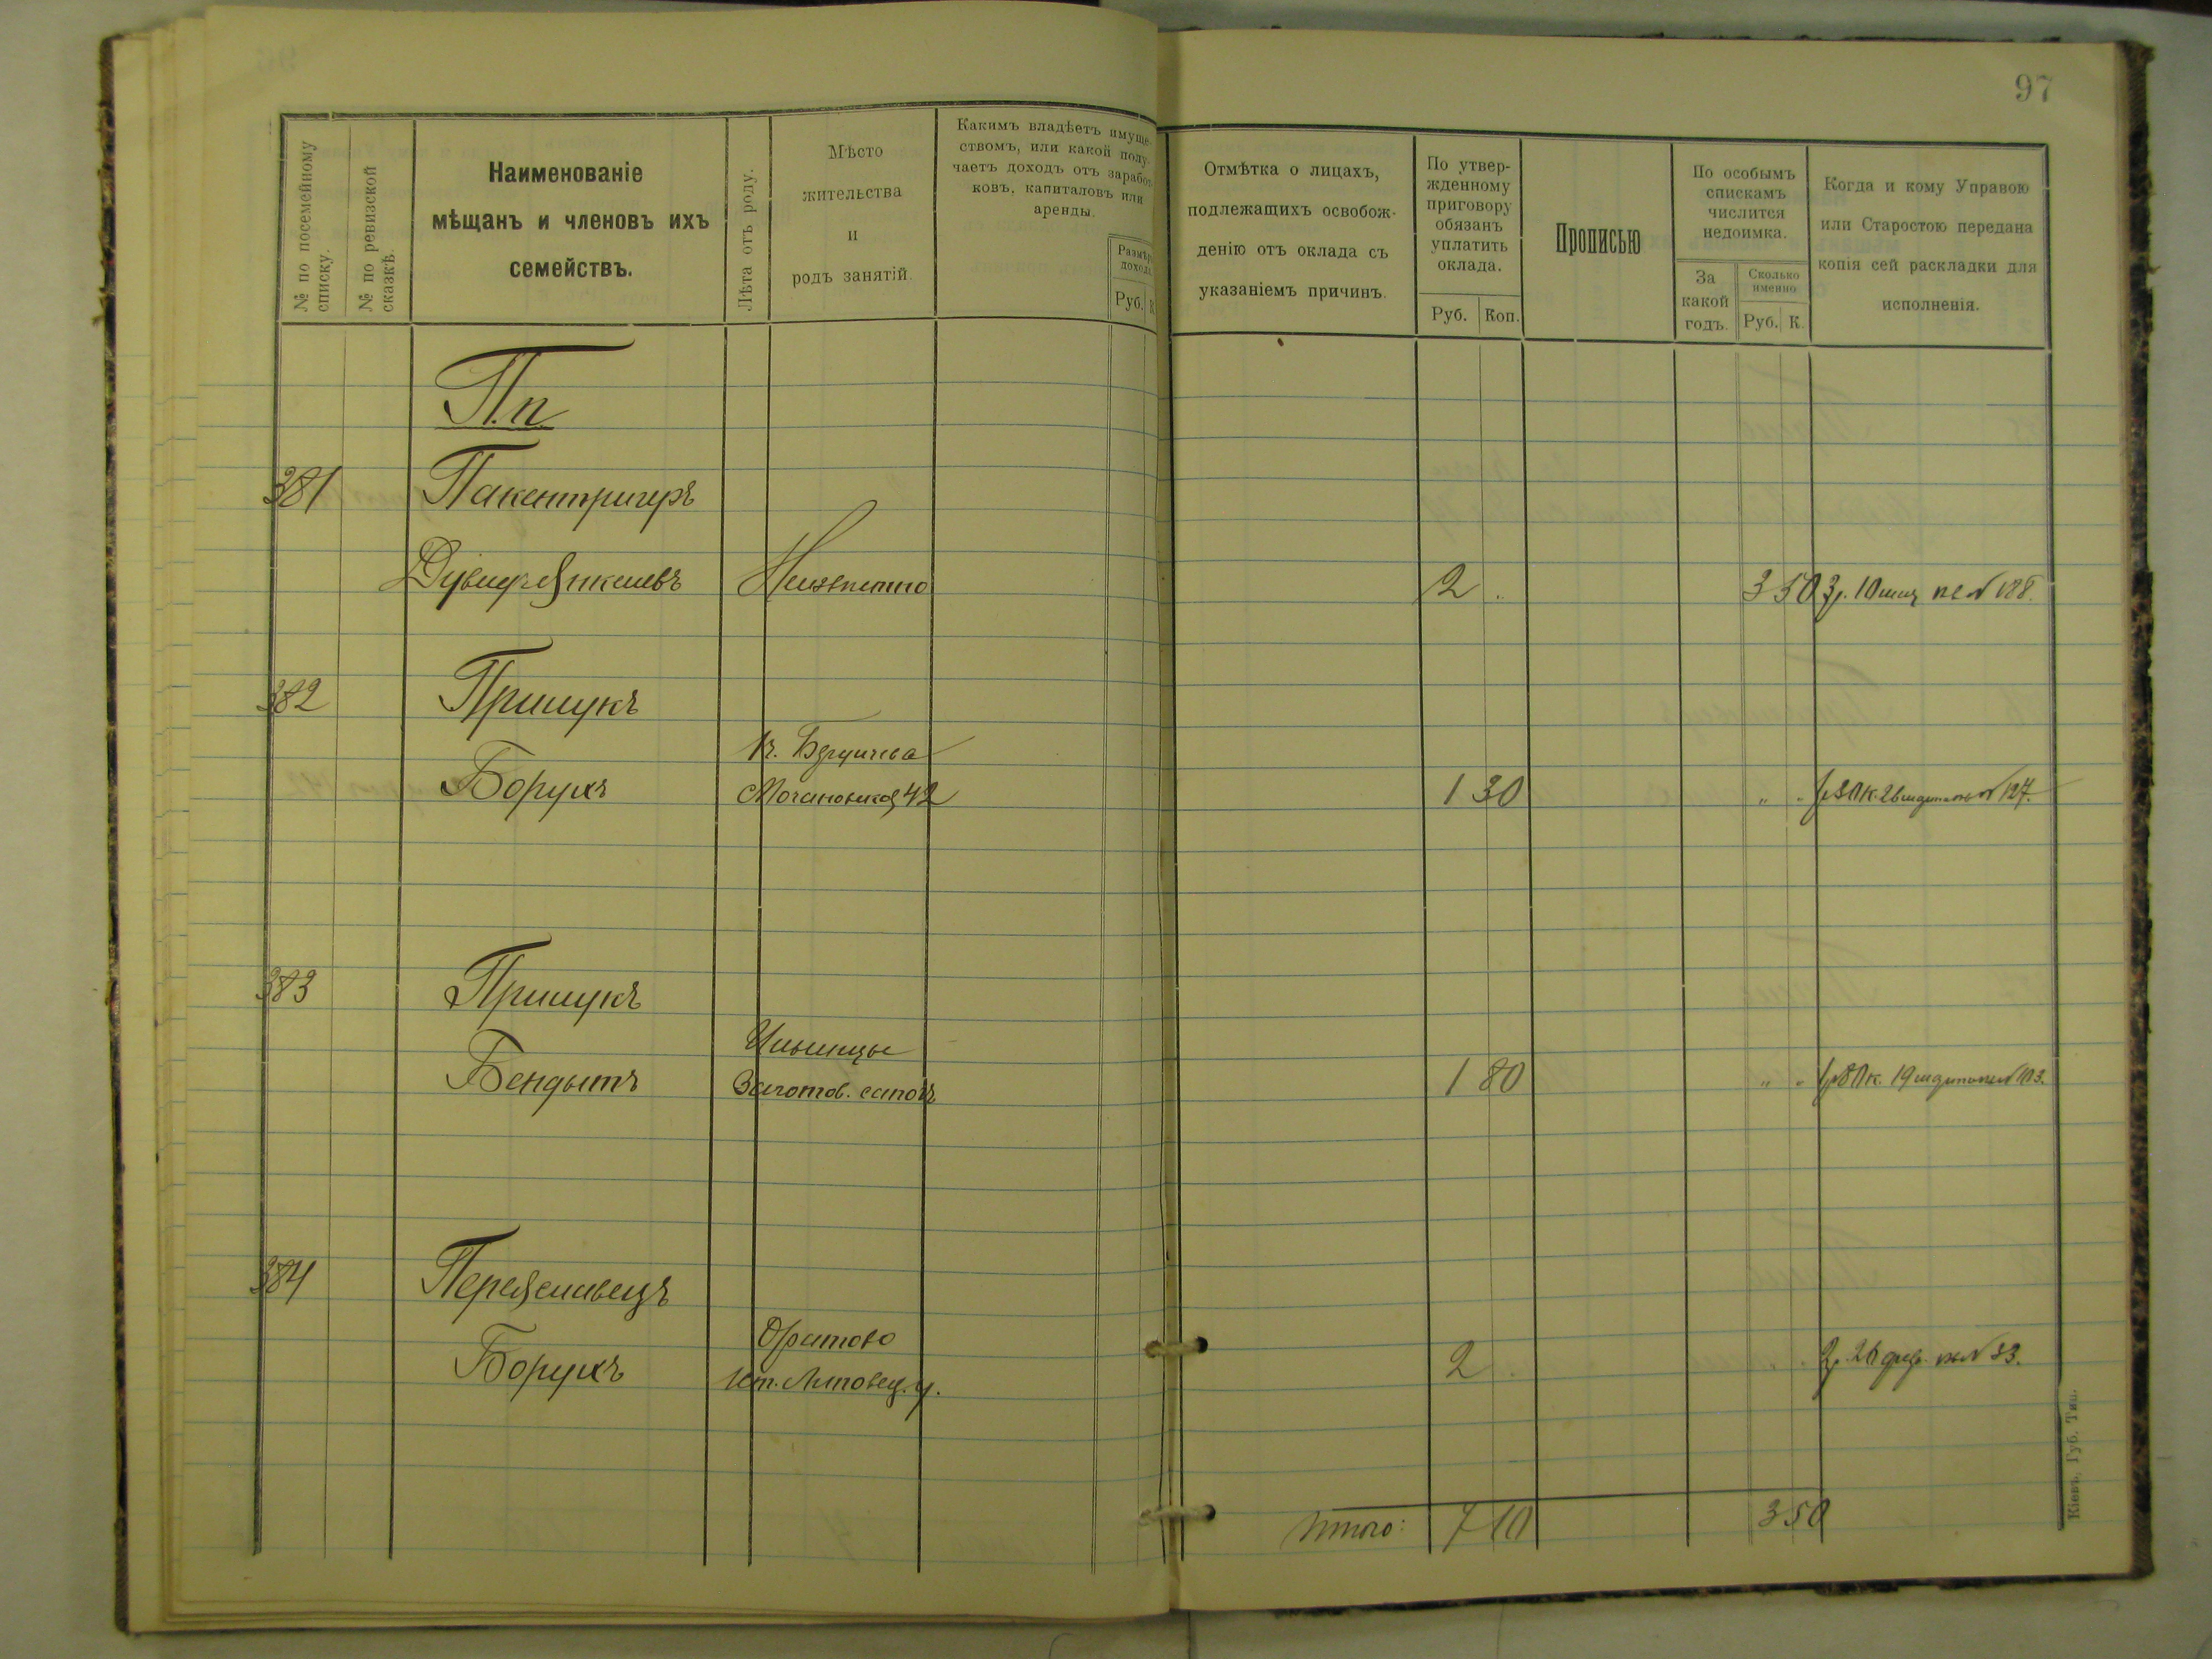 97
№ по посемейному списку.
№ по ревизской сказкѣ.
Наименованіе
мѣщанъ и членовъ ихъ
семействъ.
Лѣта отъ роду.
Мѣсто
жительства
и
родъ занятій.
Какимъ владѣетъ имуще-
ствомъ, или какой полу-
чаетъ доходъ отъ заработ-
ковъ, капиталовъ или
аренды.
Размѣръ
дохода.
Руб. К.
Отмѣтка о лицахъ,
подлежащихъ освобож-
денію отъ оклада съ
указаніемъ причинъ.
По утвер-
жденному
приговору
обязанъ
уплатить
оклада.
Руб. Коп.
Прописью
По особымъ
спискамъ
числится
недоимка.
За
какой
годъ.
Сколько
именно
Руб. К.
Когда и кому Управою
или Старостою передана
копія сей раскладки для
исполненія.
П.п.
381 Пакентригеръ
Неизвѣстно 2 3 50 3 р. 10 № 188.
382 Прицукъ
Борухъ 42 1 30 " " 127.
383 Прицукъ
Ильинцы
Бендытъ Заготов. сапогъ 1 80 " " 19 № 113.
384 Переяславецъ
Оратово
Борухъ Липовец. у. 2 . 2 р. 26 февр. № 33.
Итого: 7 10 3 50
Кіевъ, Губ. Тип.